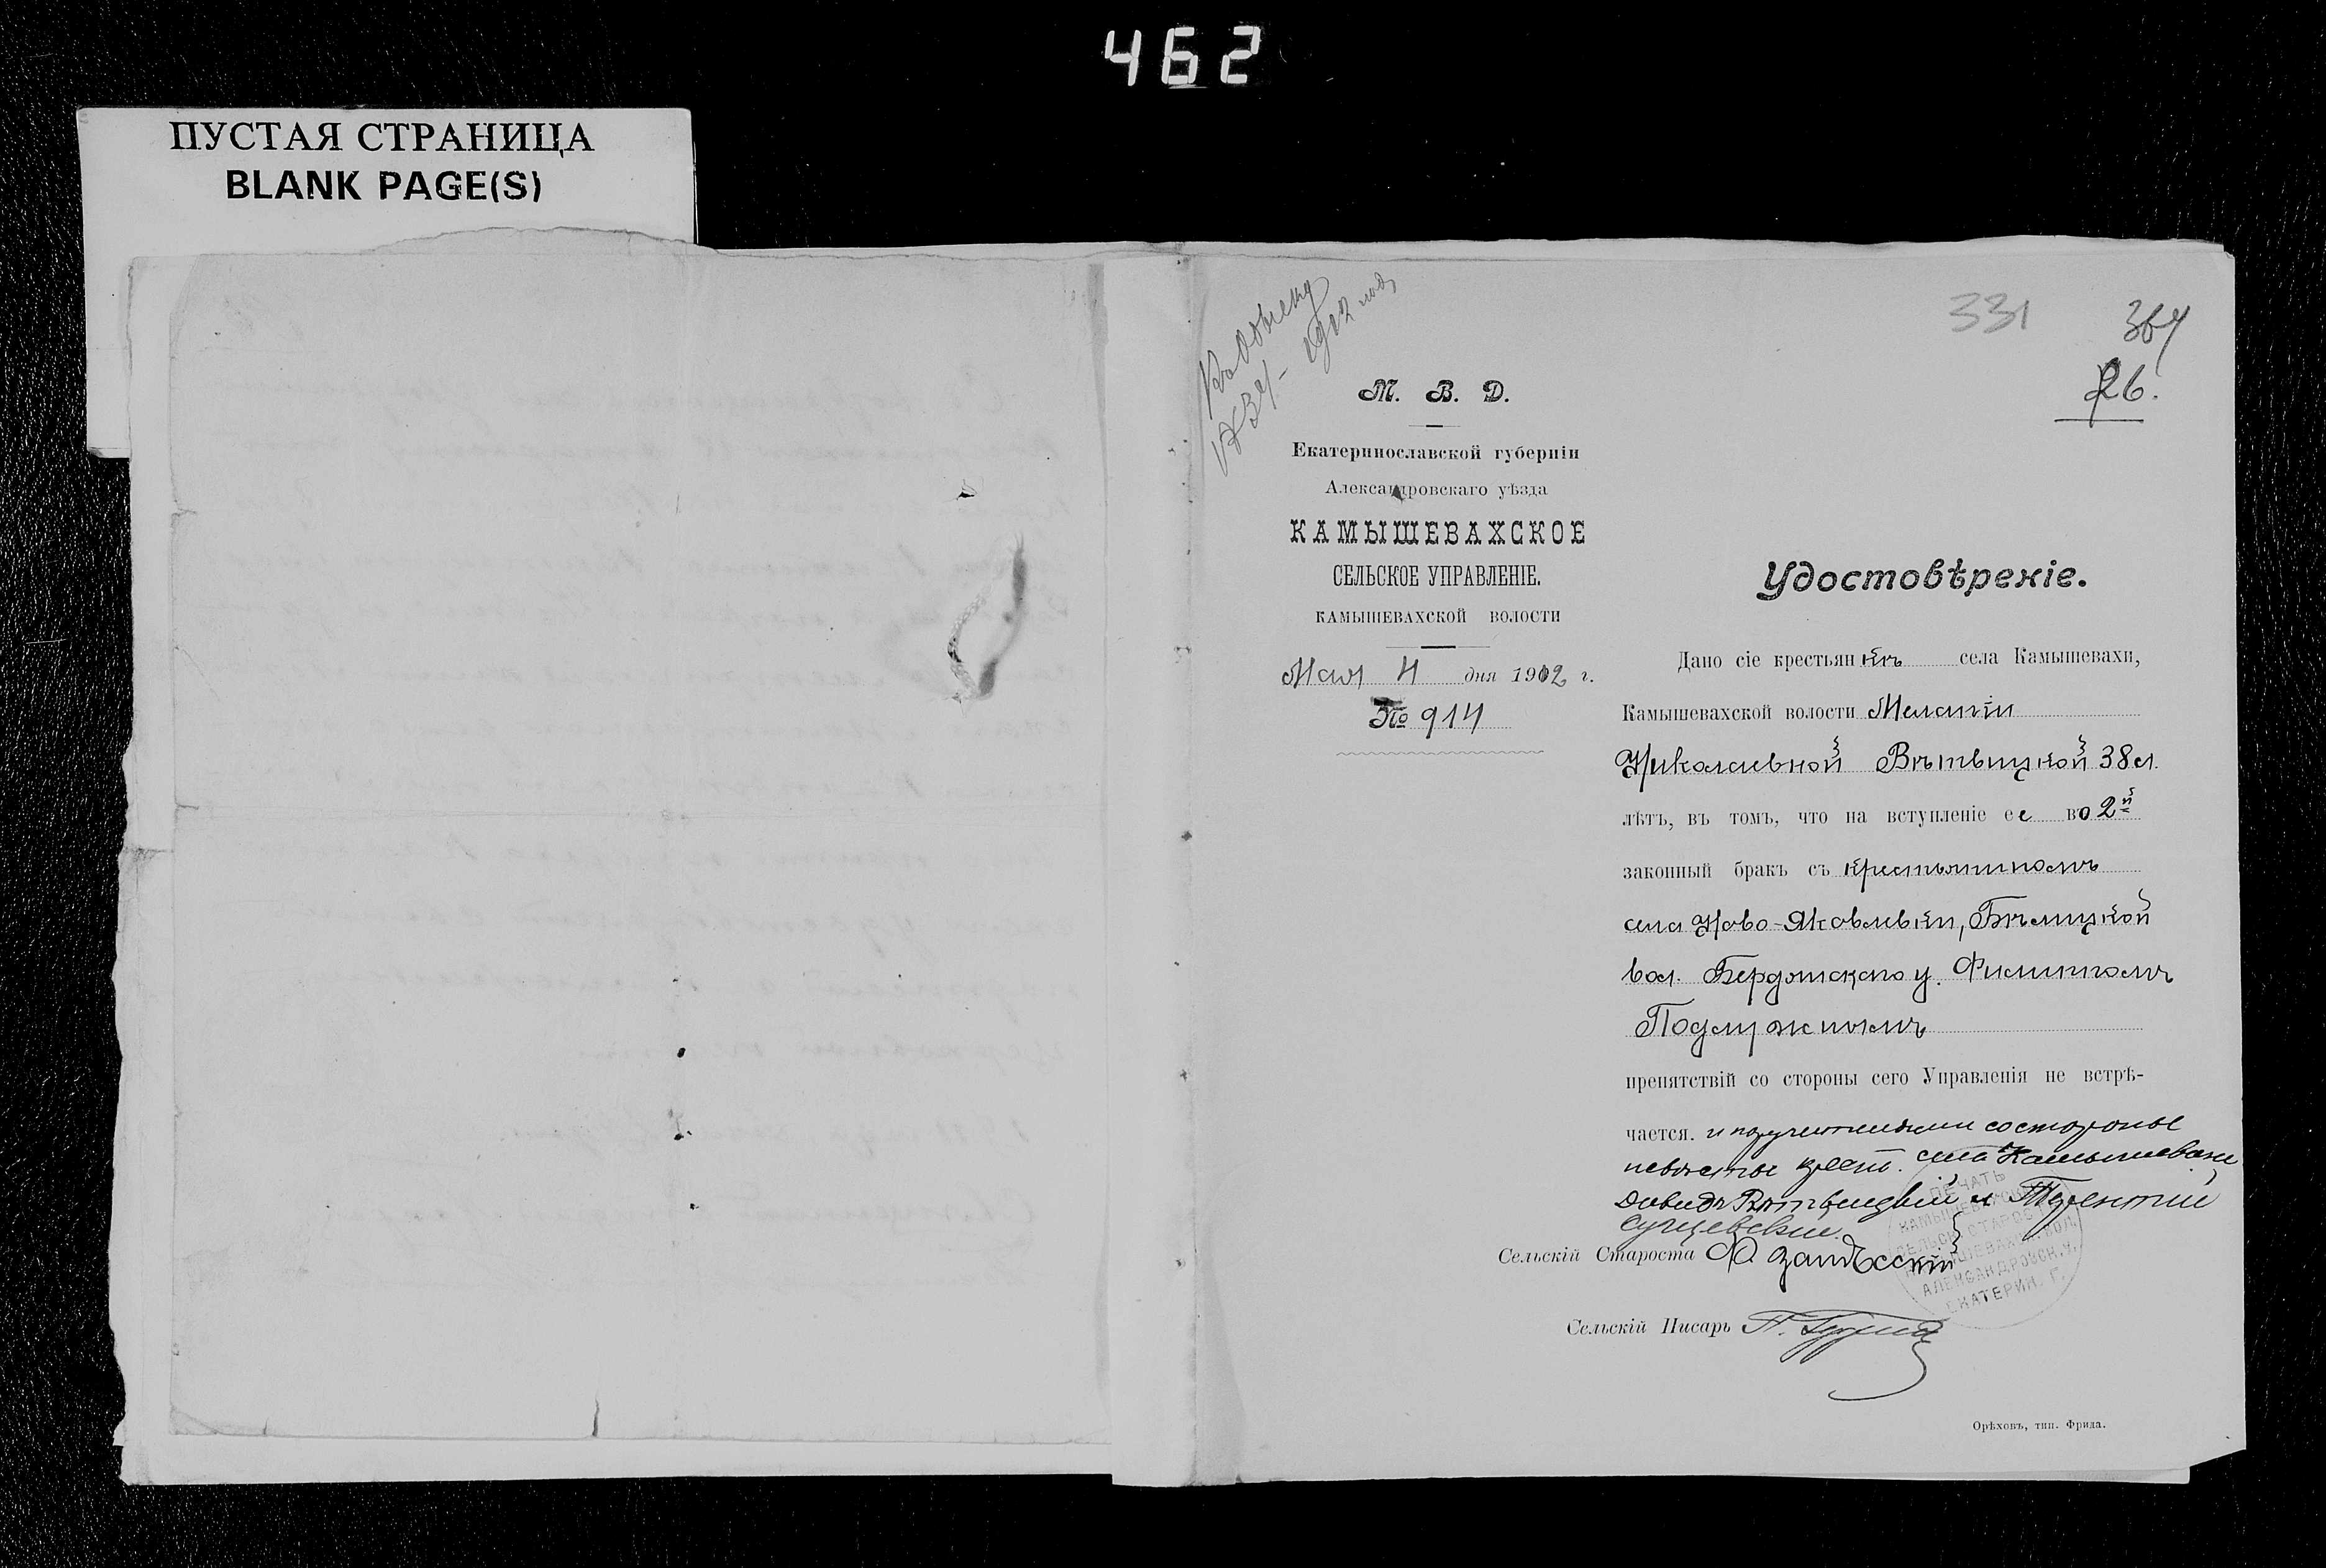 462
ПУСТАЯ СТРАНИЦА
BLANK PAGE(S)
331
364
26.
М. В. Д.
Екатеринославской губерніи
Александровскаго уѣзда
КАМЫШЕВАХСКОЕ
СЕЛЬСКОЕ УПРАВЛЕНІЕ.
КАМЫШЕВАХСКОЙ ВОЛОСТИ
Мая 4 дня 1912 г.
№ 914
Удостовѣреніе.
Дано сіе крестьянкѣ села Камышевахи,
Камышевахской волости Меланіи
Николаевной Вѣтвицкой 38 л.
лѣтъ, въ томъ, что на вступленіе ее во 2й
законный бракъ съ крестьяниномъ
села Ново-Яковлевки, Бѣлицкой
вол. Бердянскаго у. Филиппомъ
Подлужнымъ
препятствій со стороны сего Управленія не встрѣ-
чается. и поручителями со стороны
невѣсты крест. села Камышевахи
Давидъ Вѣтвицкій и Терентій
Сущевскіе.
Сельскій Староста
Сельскій Писарь П.
ПЕЧАТЬ
КАМЫШЕВАХСК.
СЕЛЬСК. СТАРОСТЫ
КАМЫШЕВАХСК. ВОЛ.
АЛЕКСАНДРОВСК. У.
ЕКАТЕРИН. Г.
Орѣховъ, тип. Фрида.